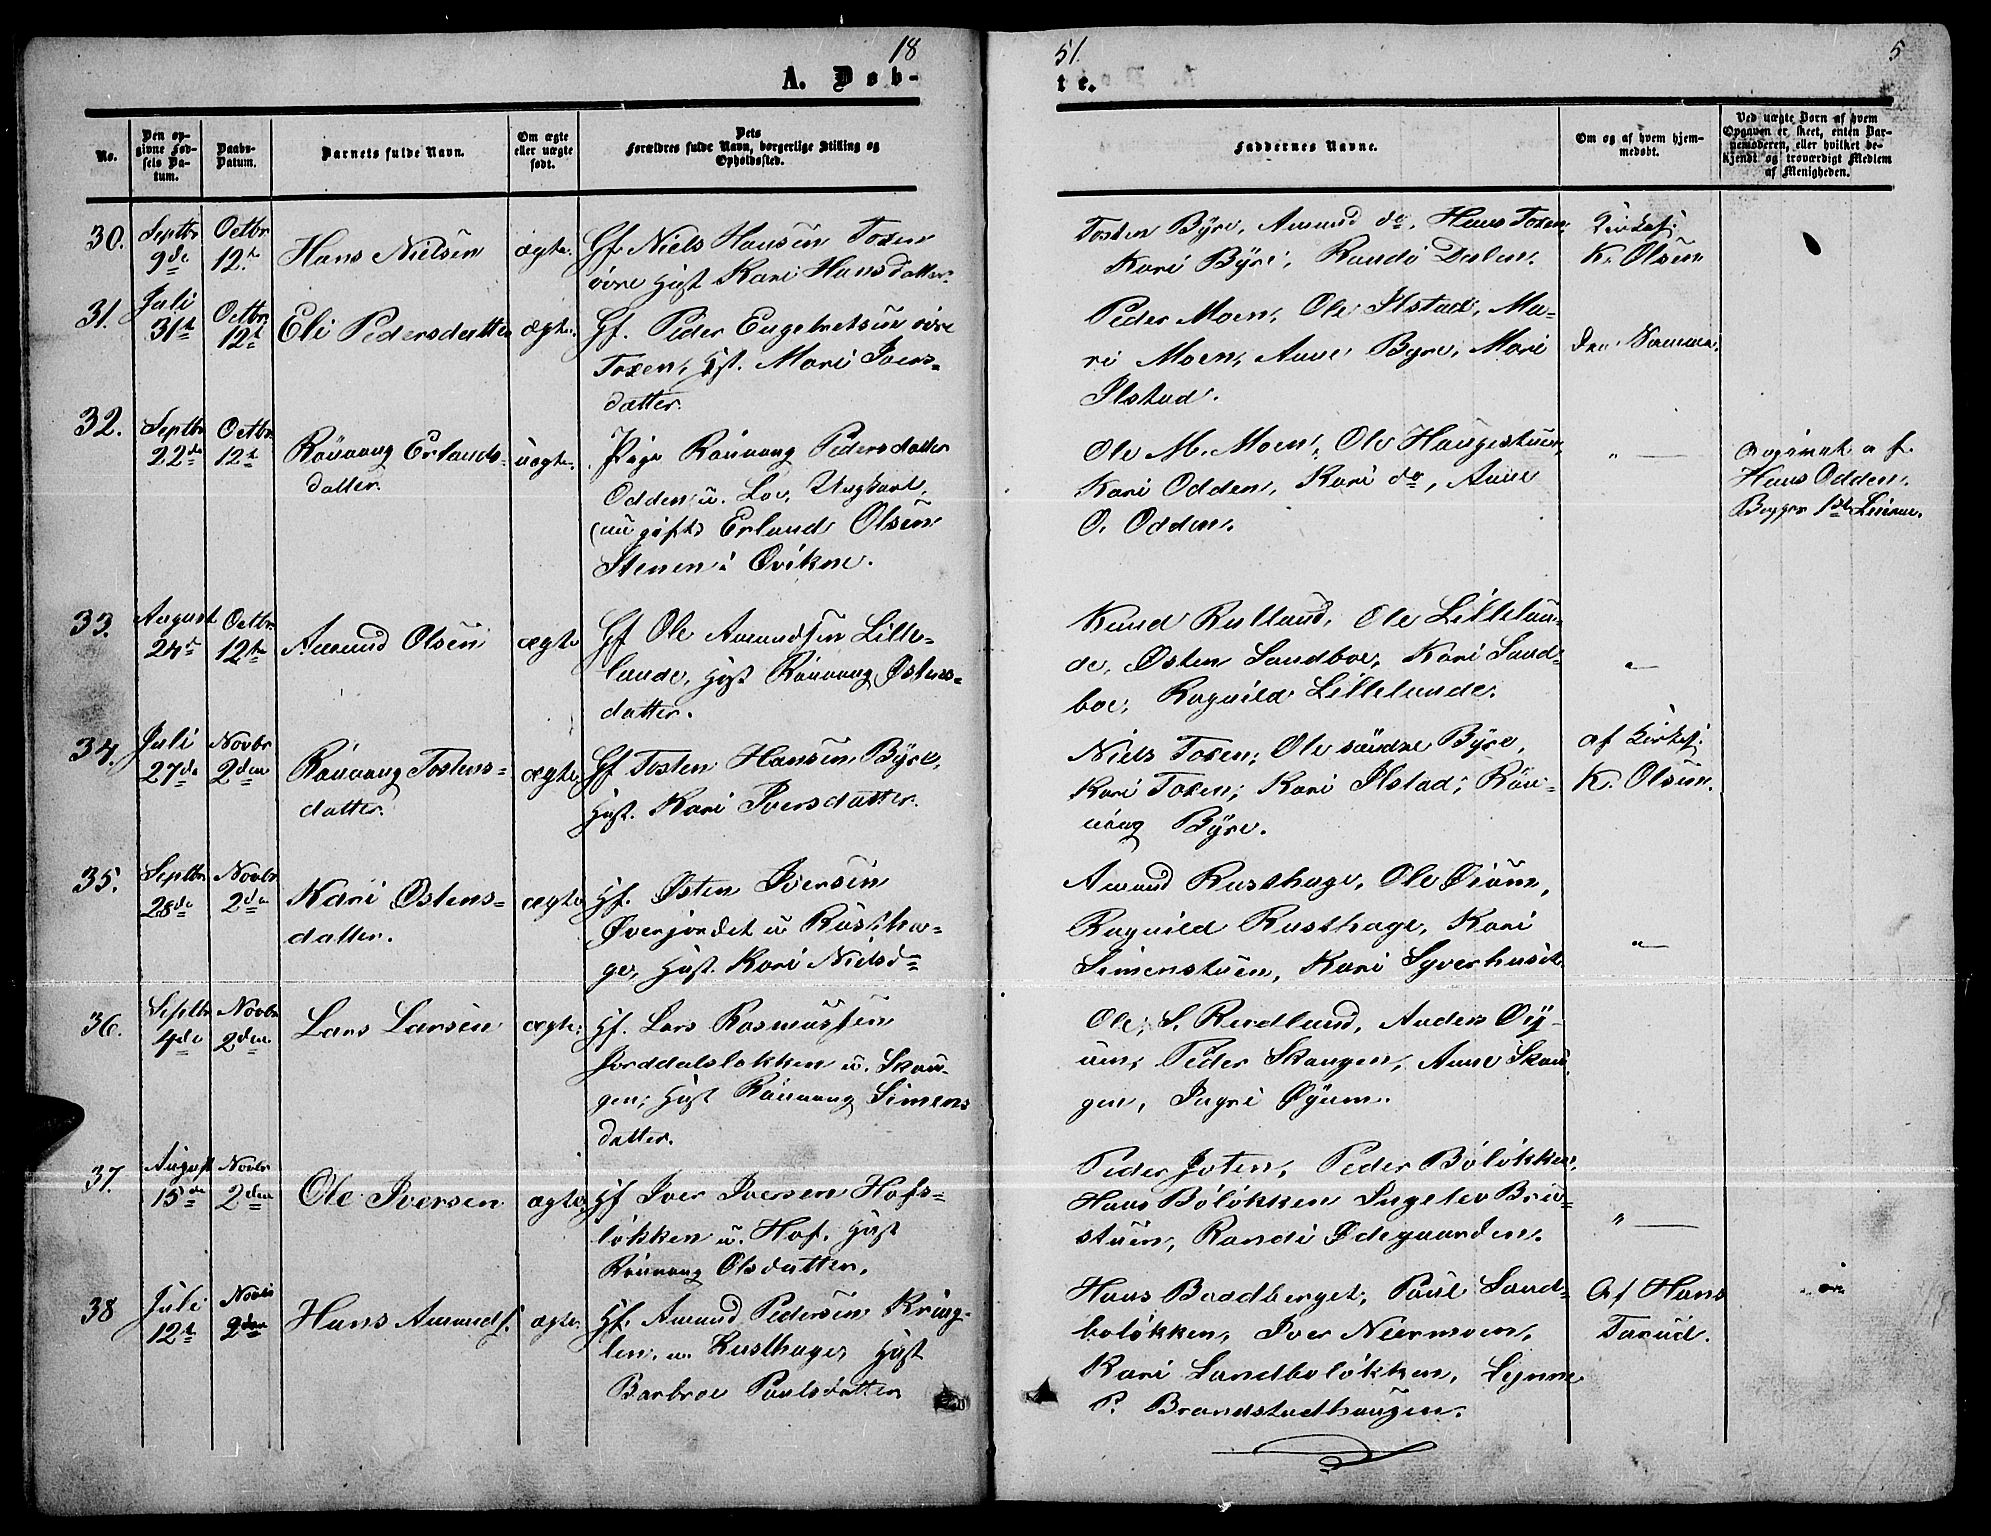 18
A. Døb-
No.
Den op-
givne Fød-
sels Da-
tum.
Daabs-
Datum.
Barnets fulde Navn.
Om ægte
eller uægte
født.
Dets
Forældres fulde Navn, borgerlige Stilling og
Opholdssted.
30.
Septbr
9de
Octbr
12te
Hans Nielsen
ægte.
Gf. Niels Hansen Toxen
øvre Hust Kari Hansdatter
31.
Juli
31te
Octbr
12te
Eli Pedersdatter
ægte.
Gf. Peder Engebretsen øvre
Toxen, Hst. Mari Ivers-
datter.
32.
Septbr
22de
Octbr
12te
Rönnaug Erlands-
datter.
uægte.
Pige Rönnaug Pedersdatter
Odden u. Loe, Ungkarl,
(ugift) Erland Olsen
Stenen i Qvikne.
33.
August
24de
Octbr
12te
Amund Olsen
ægte
Gf Ole Amundsen Lille-
lunde, Hust Rönnaug Østens-
datter.
34.
Juli
27de
Novbr
2den
Rönnaug Tostens-
datter.
ægte
Gf Tosten Hansen Byre,
Hust. Kari Iversdatter.
35.
Septbr
28de
Novbr
2den
Kari Østens-
datter.
ægte
Hf. Østen Iversen
Øverjordet u Rustha-
ge, Hust. Kari Nielsd=
36.
Septbr
4de
Novbr
2den
Lars Larsen
ægte.
Hf. Lars Rasmussen
Jorddalsløkken u. Skou-
gen; Hust Rönnaug Simens
datter.
37.
August
15de
Novbr
2den
Ole Iversen
ægte
Hf Iver Iversen Hofs-
løkken u. Hof, Hust
Rönnaug Olsdatter.
38
Juli
12te
Novbr
2den
Hans Amunds.
ægte.
Hf. Amund Pedersen Kring-
len, u. Rusthage, Hust
Barbroe Paulsdatter
51.
5
te.
Faddernes Navne.
Om og af hvem hjem-
medøbt.
Ved uægte Børn af hvem
Opgaven er skeet, enten Bar-
nemoderen, eller hvilket be-
kjendt og troværdigt Medlem
af Menigheden.
Tosten Byre, Amund do, Hans Toxen,
Kari Byre, Randi Dalen.
Kirkes:
K. Olsen
Peder Moen, Ole Ilstad, Ma-
ri Moen, Anne Byre, Mari
Ilstad.
den Samme.
Ole M. Moen, Ole Haugestuen,
Kari Odden, Kari do, Anne
O. Odden.
" —
Angivet af
Hans Odden,
Bygger
Knud Rulland, Ole Lillelun-
de, Østen Sandboe, Kari Sand-
boe, Ragnild Lillelunde.
"
Niels Toxen; Ole søndre Byre,
Kari Toxen; Kari Ilstad; Rön-
naug Byre.
af Kirkes:
K. Olsen.
Amund Rusthage, Ole Øium,
Ragnild Rusthage, Kari
Simenstuen, Kari Syverhuset.
" —
Ole S. Rudlund, Anders Øy-
um; Peder Skougen, Anne Skou
gen, Ingri Øyum.
Peder Joten, Peder Boløkken,
Hans Boløkken Ingelev Brue-
stuen, Randi Ødegaarden.
" —
Hans Baadberget, Paul Sand-
boløkken, Iver Niermoen,
Kari Sandboløkken, Synne
P. Brandstadhaugen.
Af Hans
Toxud.